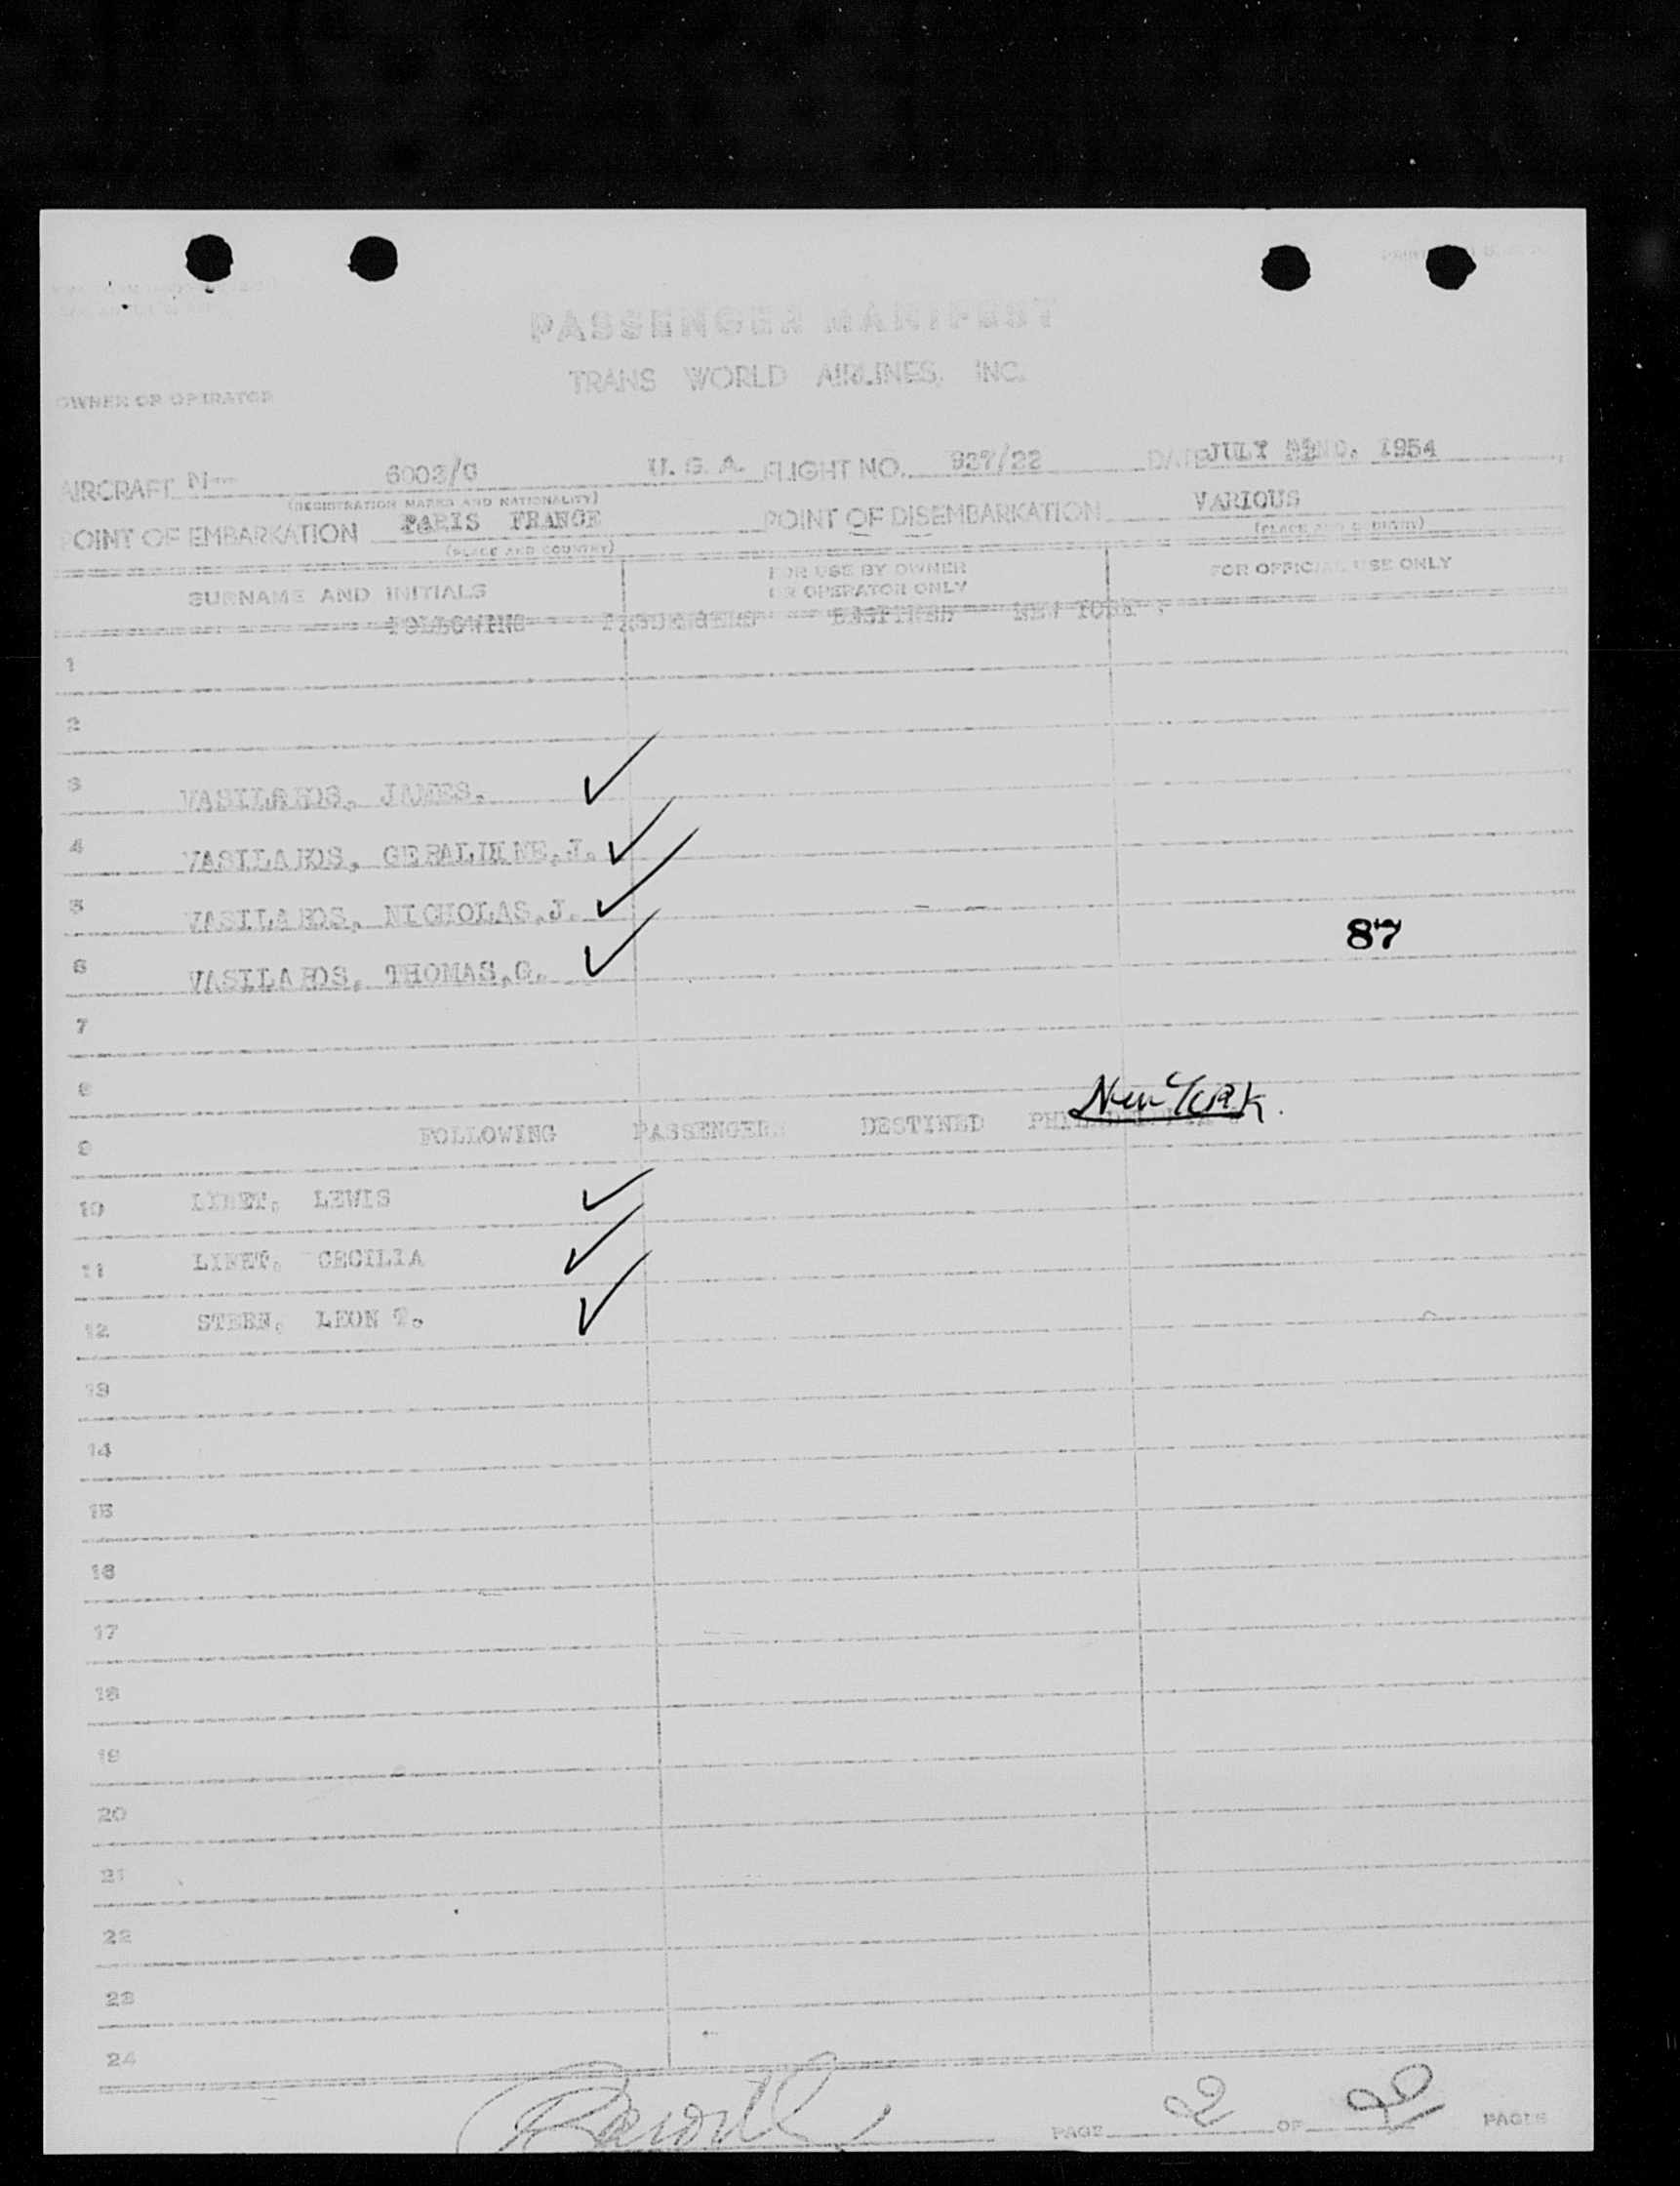 PASSENGER MANIFEST
TRANS WORLD AIRLINES, INC.
OWNER OR OPERATOR
AIRCRAFT N-- 6003/C U. S. A. FLIGHT NO. 927/22 DATE JULY 22ND, 1954
(REGISTRATION MARKS AND NATIONALITY)
POINT OF EMBARKATION PARIS FRANCE POINT OF DISEMBARKATION VARIOUS
(PLACE AND COUNTRY) (PLACE AND COUNTRY)
SURNAME AND INITIALS FOR USE BY OWNER OR OPERATOR ONLY FOR OFFICIAL USE ONLY
FOLLOWING PASSENGERS DESTINED NEW YORK :
1
2
3 VASILAKOS, JAMES.
4 VASILAKOS, GERALDINE,J.
5 VASILAKOS, NICHOLAS,J.
87
6 VASILAKOS, THOMAS,G.
7
8
New York.
9 FOLLOWING PASSENGERS DESTINED PHILADELPHIA
10 LEWIS
11 CECILIA
12 STEEN, LEON T.
13
14
15
16
17
18
19
20
21
22
23
24
PAGE 2 OF 2 PAGES